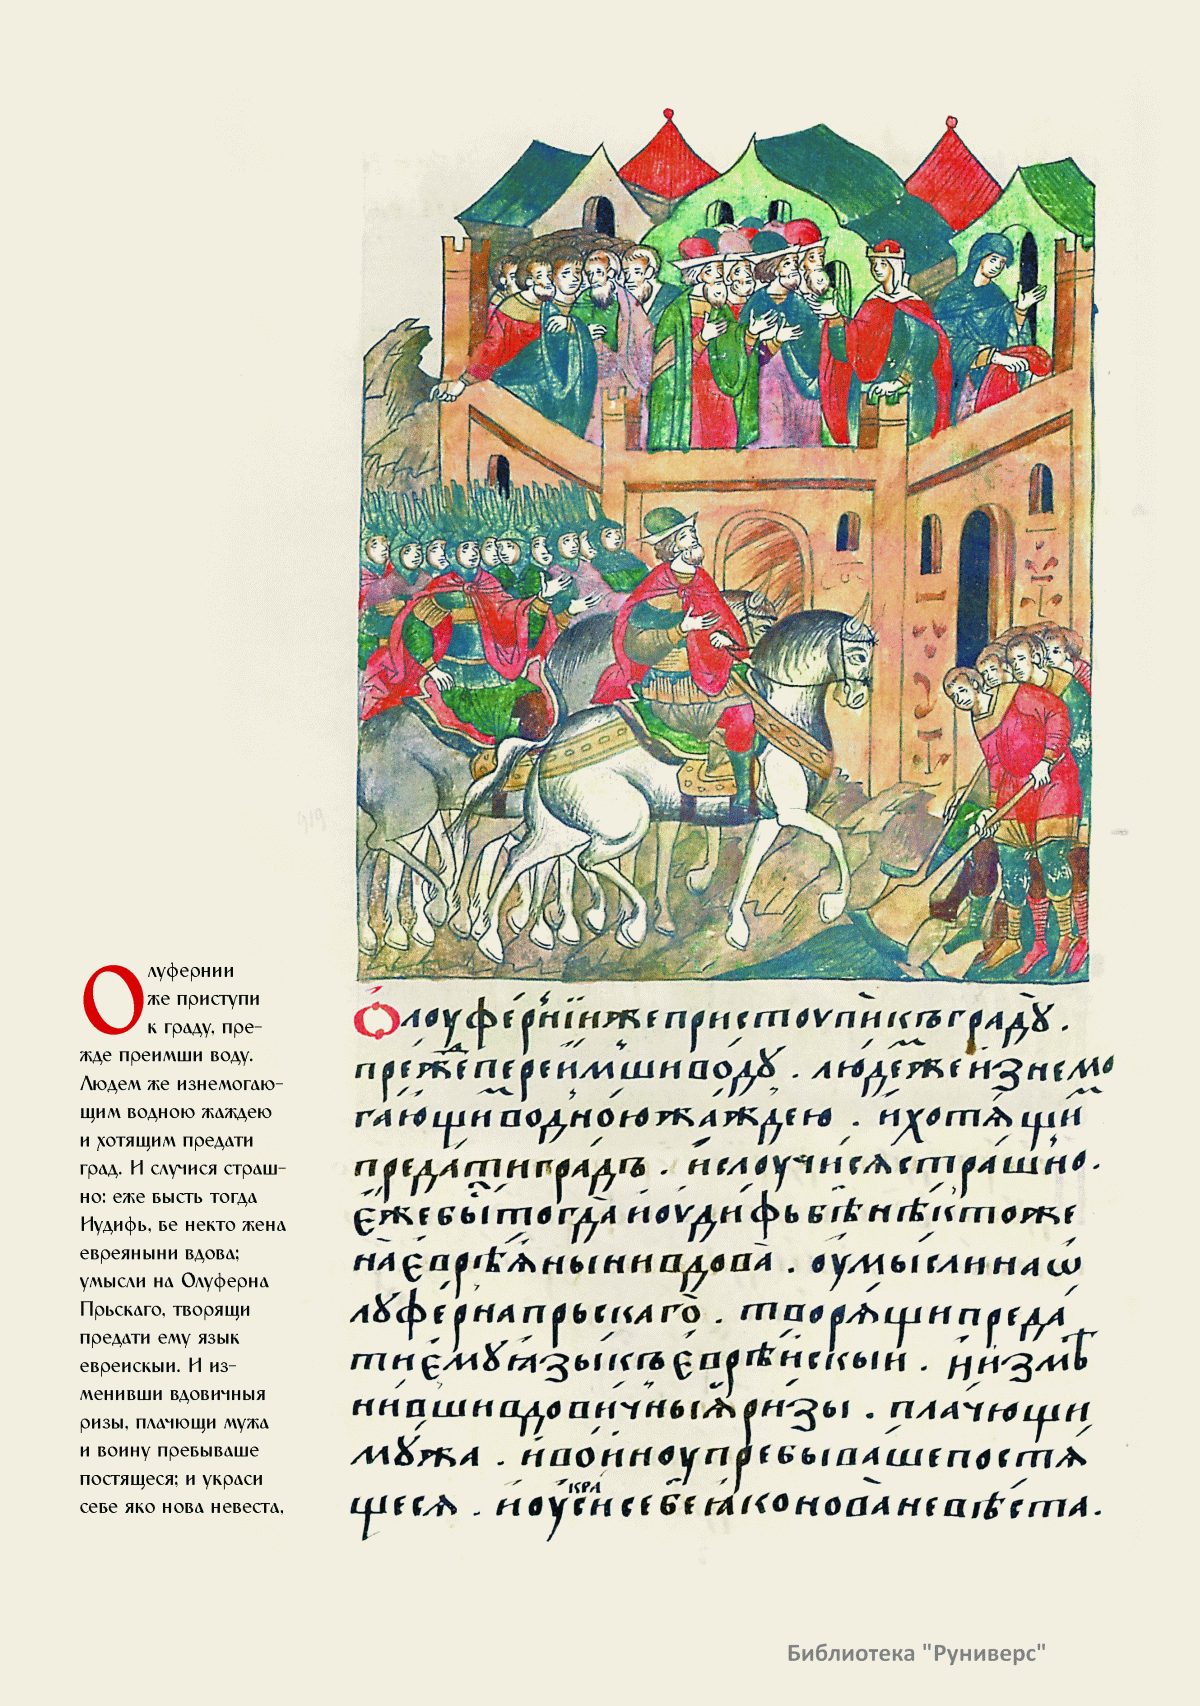 Олуфернии
же приступи
к граду, пре-
жде преимши воду.
Людем же изнемогаю-
щим водною жаждею
и хотящим предати
град. И случися страш-
но: еже бысть тогда
Иудифь, бе некто жена
евреяныни вдова;
умысли на Олуферна
Прьскаго, творящи
предати ему язык
евреискыи. И из-
менивши вдовичныя
ризы, плачющи мужа
и воину пребываше
постящеся; и украси
себе яко нова невеста,
Ѻлоуферни́и же пристоупи къ градꙋ .
преже переимши водꙋ . люде же изнемо
гающи водною жаждею . и хотѧщи
предати градъ . и слоучисѧ страшно .
еже бы тогда иоудифь бѣ нѣкто же
на еврѣѧныни вдова . оумысли на ѡ
лꙋферна прьскаго . творѧщи преда
ти емꙋ ꙗзыкъ еврѣискыи . и измѣ
нивши вдовичныѧ ризы . плачющи
мꙋжа . и воиноу пребываше постѧ
щесѧ . и оукраси себе ꙗко нова невѣста .
Библиотека "Руниверс"